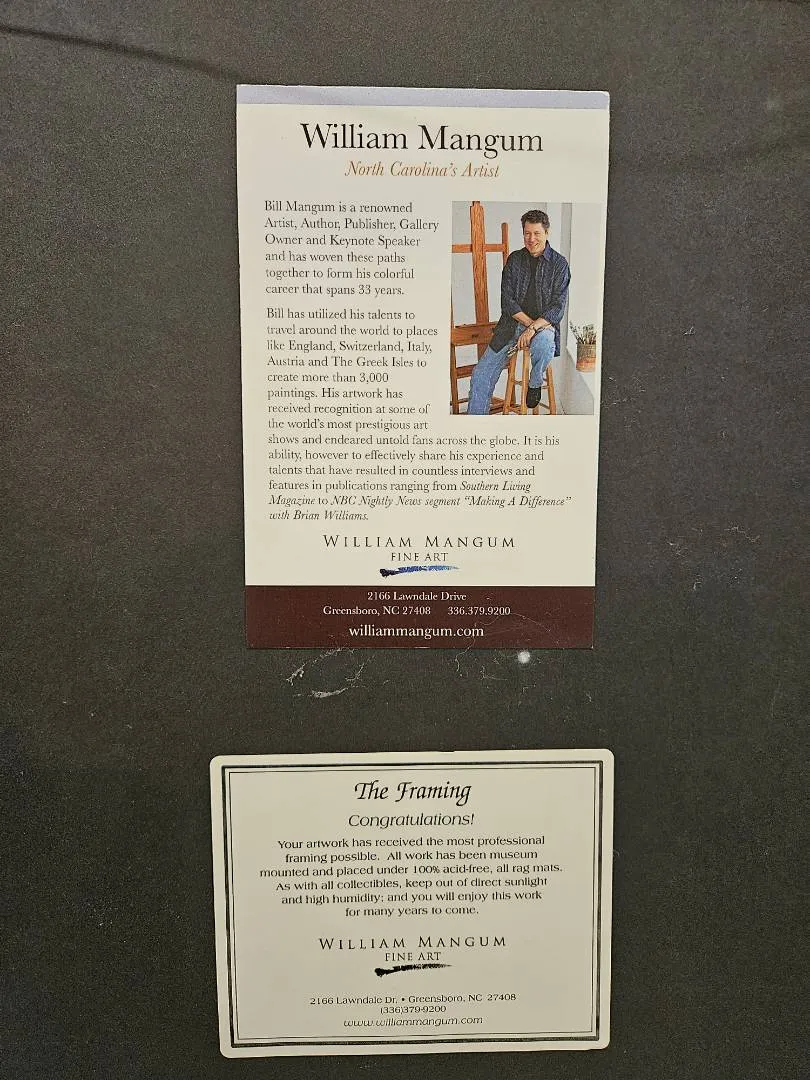 William Mangum
North Carolina's Artist
Bill Mangum is a renowned
Artist, Author, Publisher, Gallery
Owner and Keynote Speaker
and has woven these paths
together to form his colorful
career that spans 33 years.
Bill has utilized his talents to
travel around the world to places
like England, Switzerland, Italy,
Austria and The Greek Isles to
create more than 3,000
paintings. His artwork has
received recognition at some of
the world's most prestigious art
shows and endeared untold fans across the globe. It is his
ability, however to effectively share his experience and
talents that have resulted in countless interviews and
features in publications ranging from Southern Living
Magazine to NBC Nightly News segment "Making A Difference"
with Brian Williams.
WILLIAM MANGUM
FINE ART
2166 Lawndale Drive
Greensboro, NC 27408 336.379.9200
williammangum.com
The Framing
Congratulations!
Your artwork has received the most professional
framing possible. All work has been museum
mounted and placed under 100% acid-free, all rag mats.
As with all collectibles, keep out of direct sunlight
and high humidity; and you will enjoy this work
for many years to come.
WILLIAM MANGUM
FINE ART
2166 Lawndale Dr. • Greensboro, NC 27408
(336)379-9200
www.williammangum.com